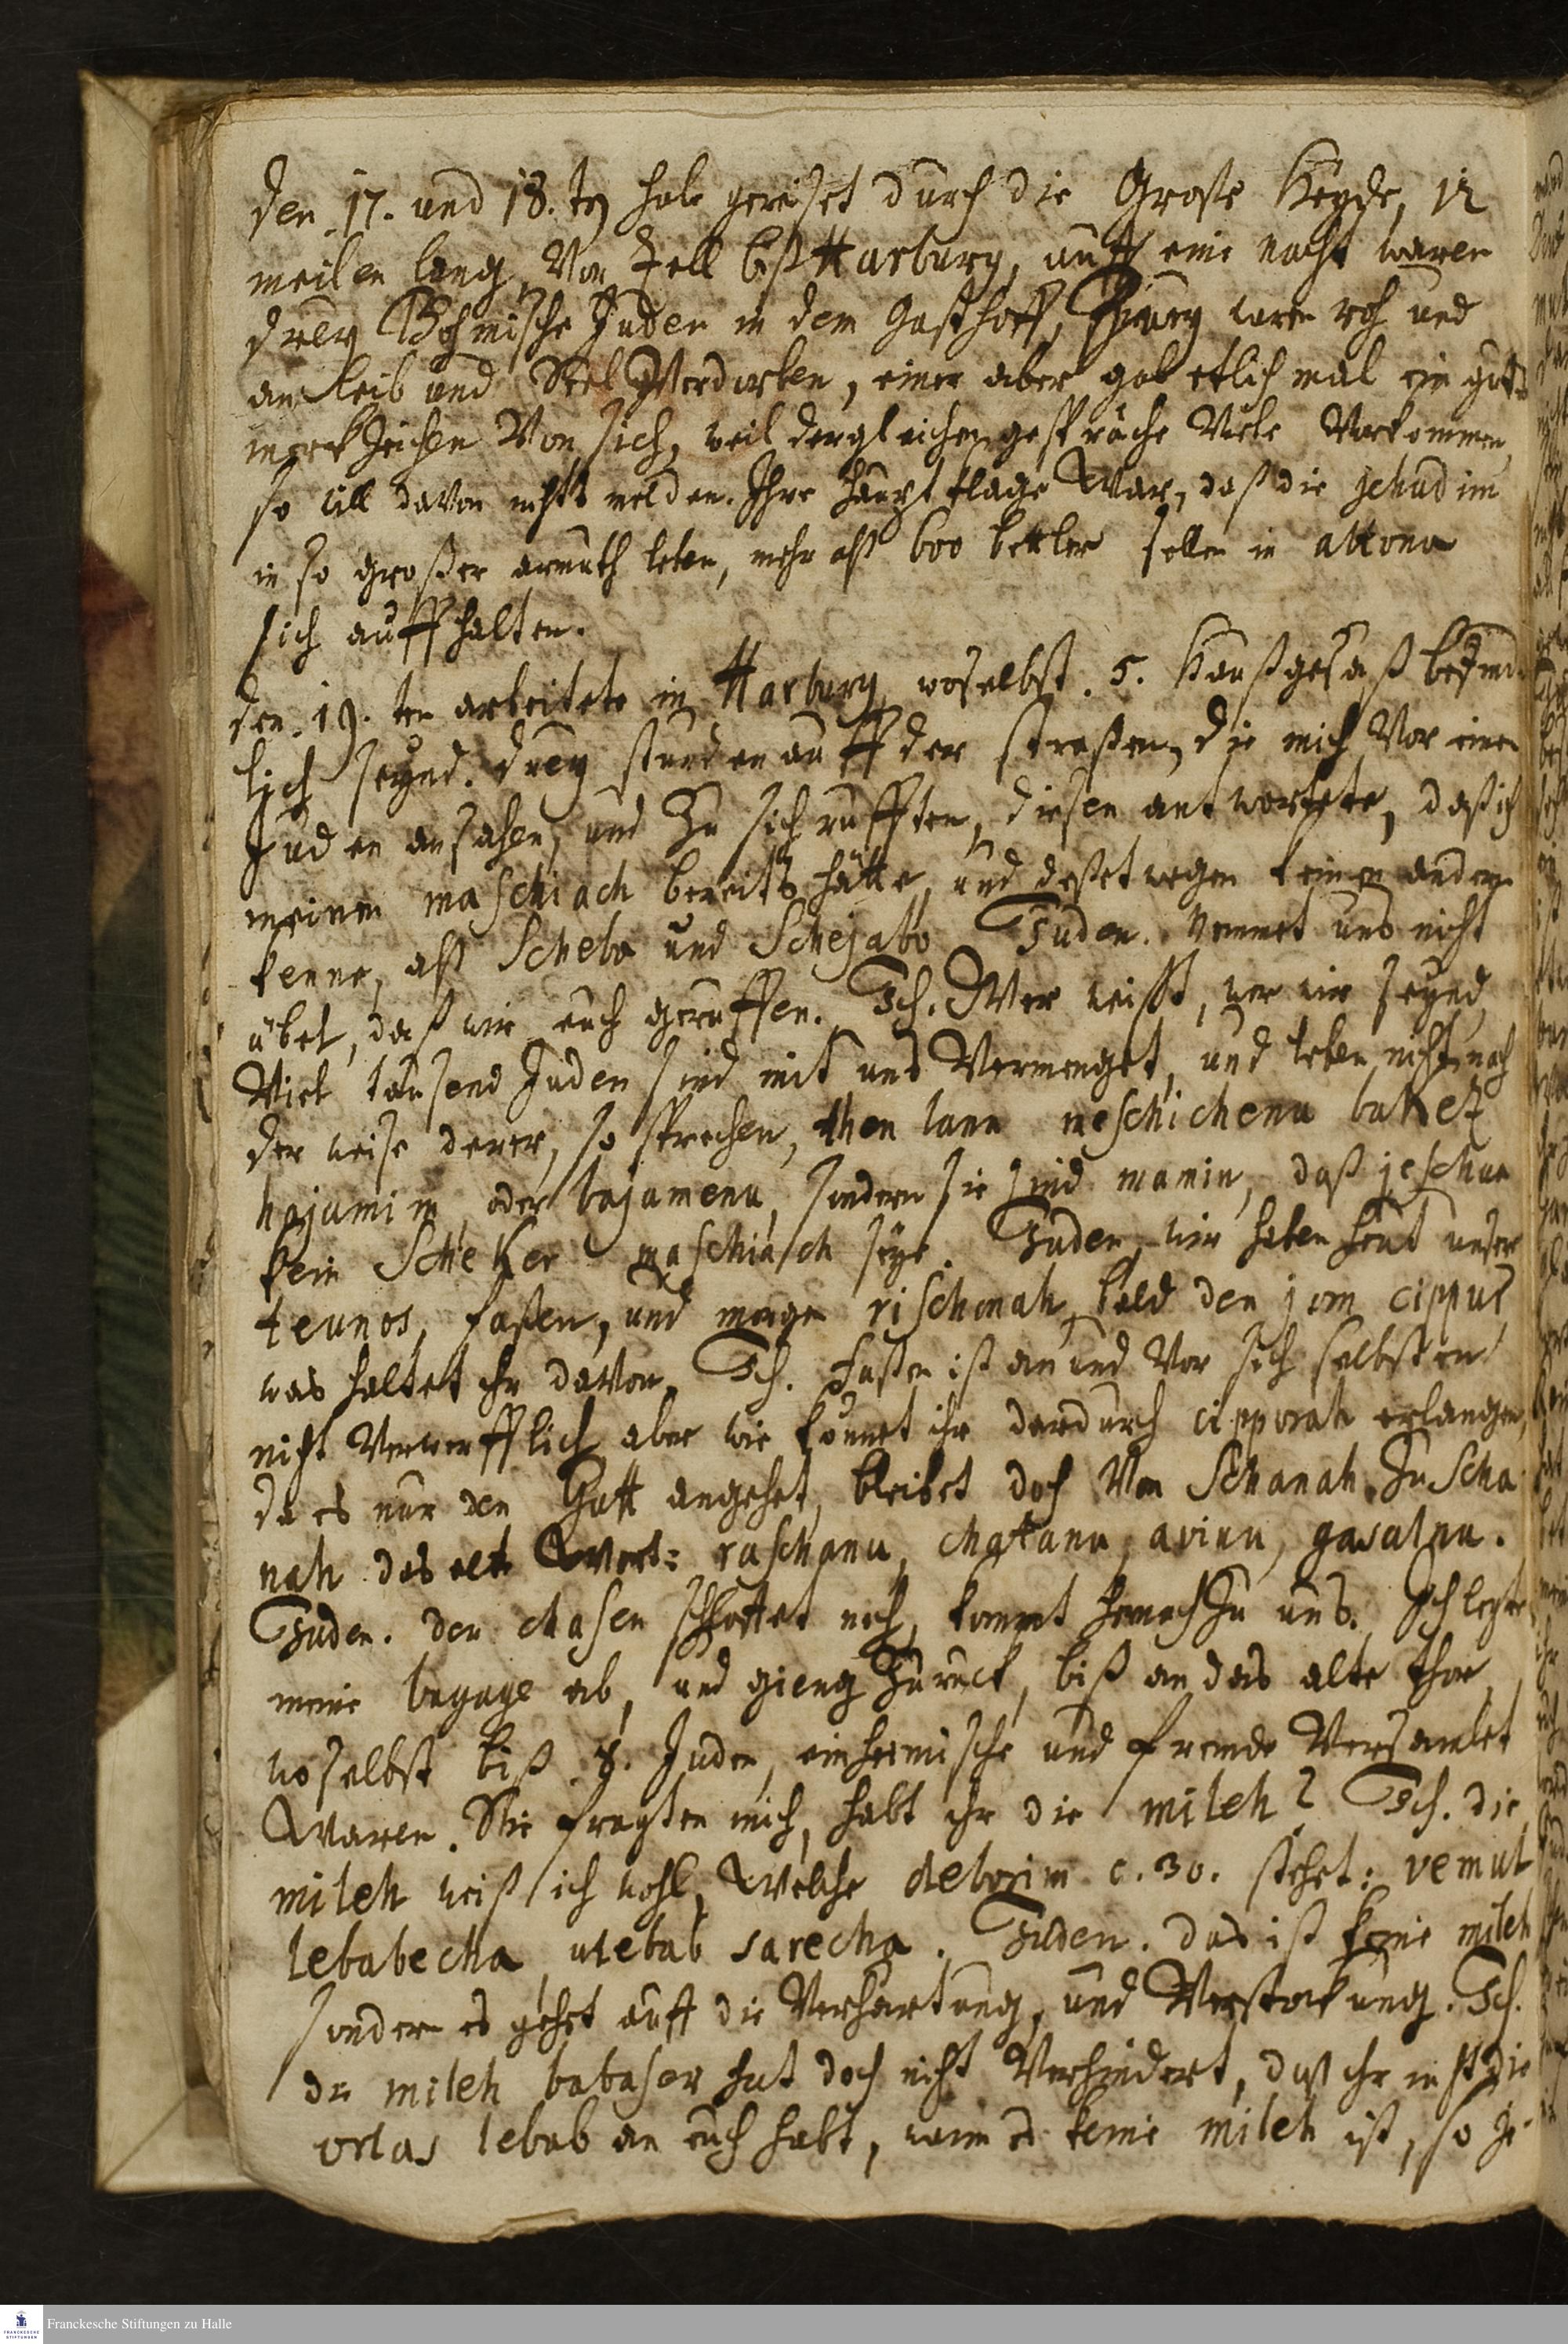 den 17. und 18. ten habe gereiset durch die Große Heyde, 12
meilen lang, Von Zell biß Harburg, auff eine nacht waren
drey Böhmische Juden in dem Gasthoff, zwey waren roh und
an leib und Seel Verdorben, einer aber gab etlich mal ein gutes
merckzeichen Von sich, weil dergleichen gespräche Viele Vorkommen,
so will davon nichts melden. Ihre Hauptklage War, daß die jehudim
in so großer armuth leben, mehr alß 600 bettler sollen in altona
sich auffhalten.
den 19. ten arbeitete in Harburg, woselbst 5. Haußgesäß befind-
lich seynd. drey stunden auff der straßen, die mich Vor einen
Juden ansahen, und Zu sich rufften, diesen antwortete, daß ich
meinen maschiach bereits hätte, und deßetwegen keinen andern
kenne, alß Scheba und Schejabo Juden. Nemmet uns nicht
übel, daß wir euch geruffen. Ich. Wer weißt, wer wir seynd,
Viel tausend Juden sind mit uns Vermenget, und leben nicht nach
der weise derer, so sprechen, then lanu meschichenu bakez
hajamim oder bajamenu, sondern sie sind mamin, daß jeschua
kein Scheker maschiasch seye. Juden, wir haben heut unser
teunos, fasten, und morgen rischonah, bald den jom cippus,
was haltet ihr davon, Ich. Fasten ist an und Vor sich selbsten
nicht Verwerfflich, aber wie könnet ihr dardurch cipporah erlangen,
da es nur den Gutt angehet, bleibet doch Von Schanah Zu Scha
nah das alte Wort: raschanu, chatanu, avinu, gasalnu.
Juden. der chasen schlottet noch, kommt hernach Zu uns. Ich legte
meine bagage ab, und gieng Zuruck, biß an das alte thor,
woselbst biß 8. Juden, einheimische und fremde Versamlet
Waren. Sie fragten mich, habt ihr die mileh? Ich. die
mileh weiß ich wohl, Welche deborim c. 30. stehet: vemul
lebabecha, ulebab sarecha. Juden. das ist keine mileh
sondern es gehet auff die Verhärtung, und Verstockung. Ich.
de mileh babaser hat doch nicht Verhindert, daß ihr nicht die
orlas lebab an euch habt, wann es keine mileh ist, so ze-
Franckesche Stiftungen zu Halle